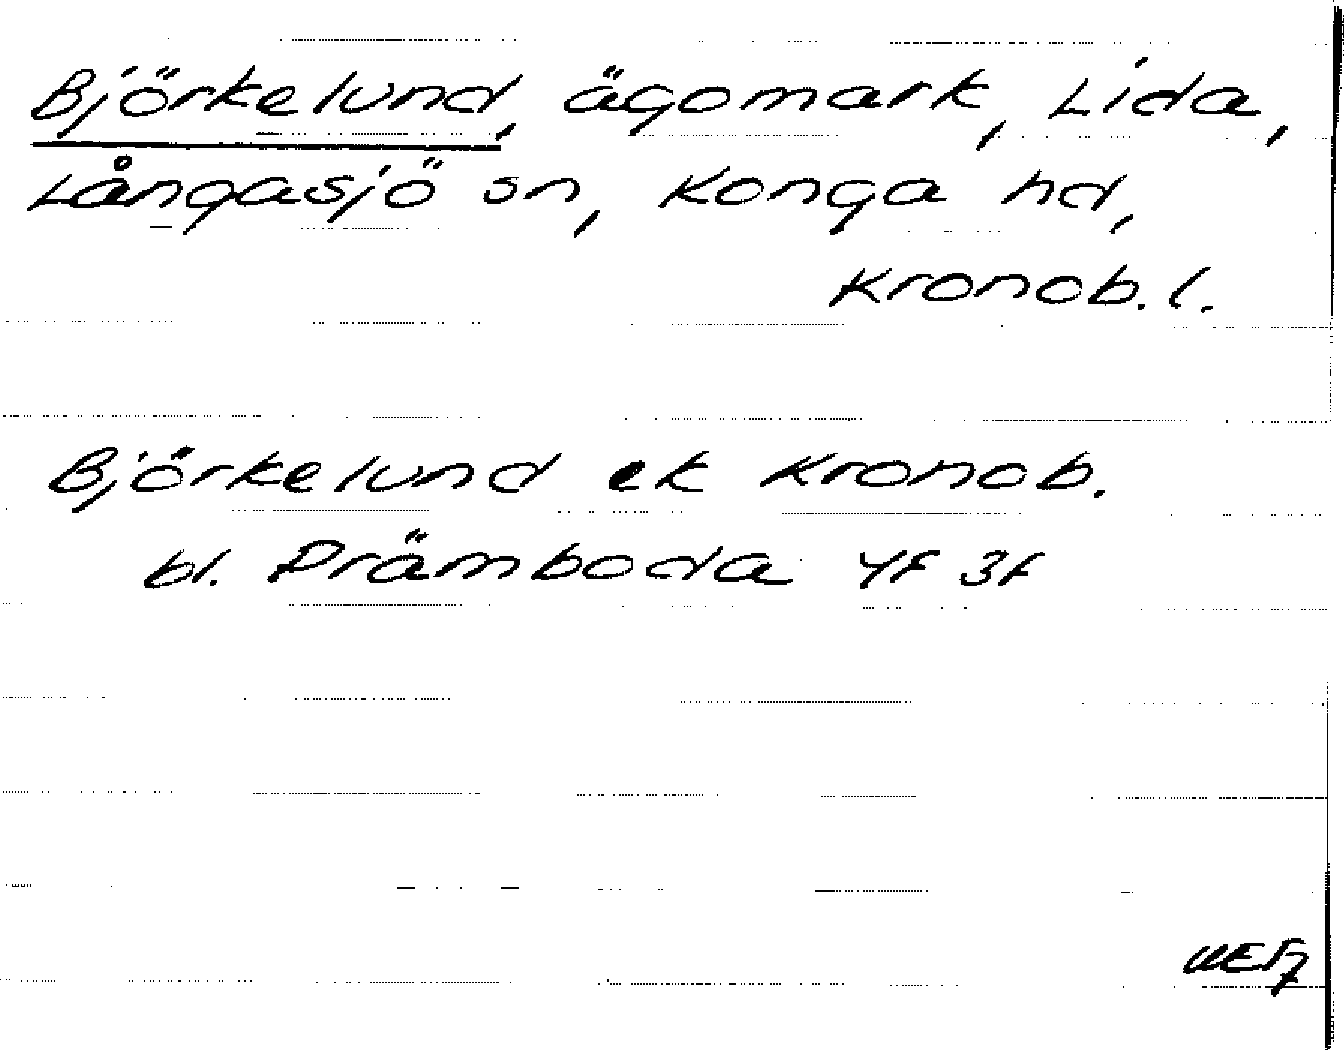 Björkelund, ägomark, Lida,
Långasjö sn, Konga hd,
Kronob. l.
Björkelund ek Kronob.
bl. Drämboda 4F 3f